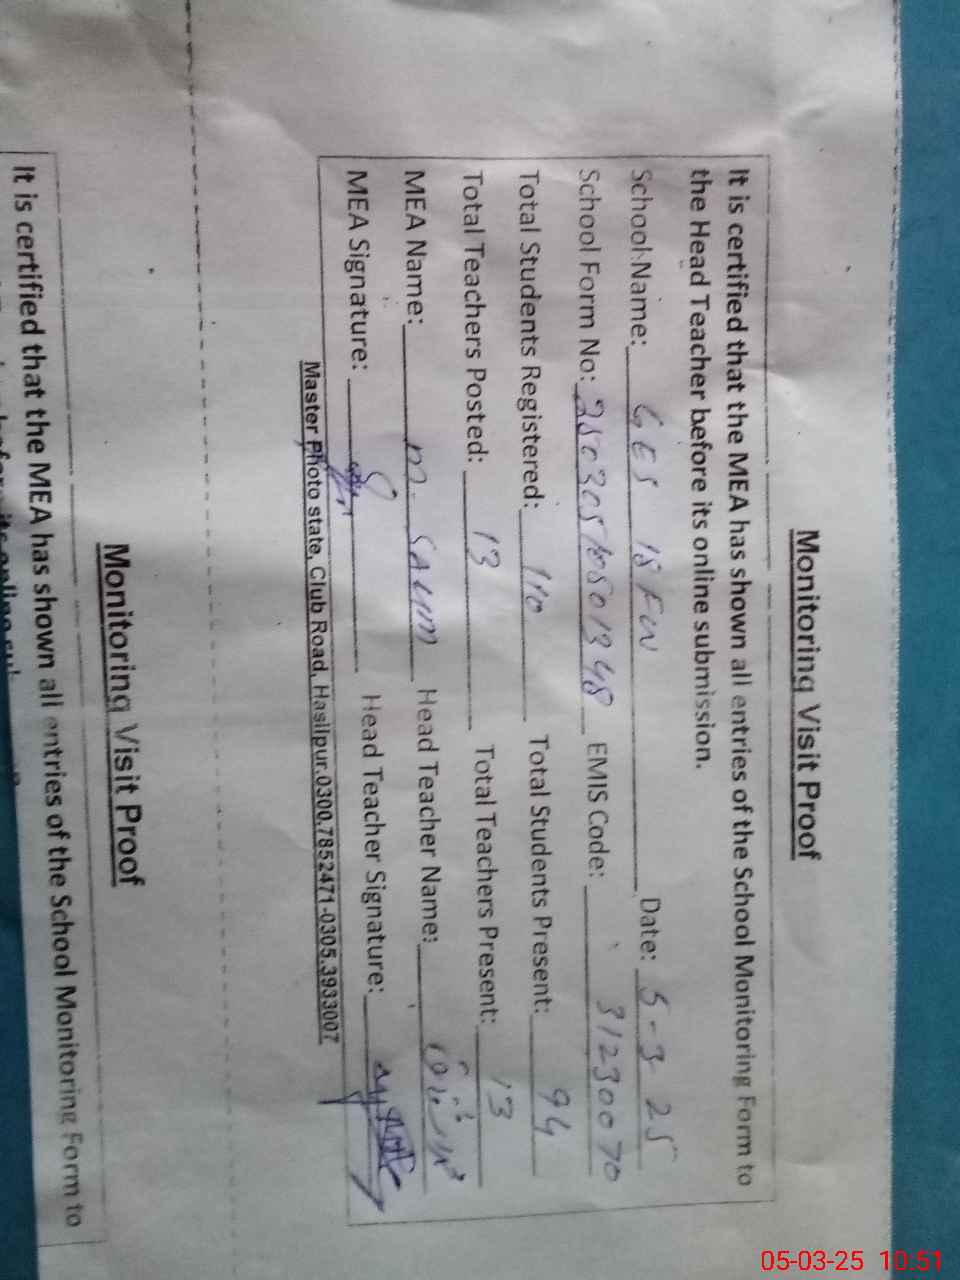 Monitoring Visit Proof
It is certified that the MEA has shown all entries of the School Monitoring Form to
the Head Teacher before its online submission.
School Name: GES 18 FW Date: 5-3-25
School Form No: EMIS Code: 31230070
Total Students Registered: 110 Total Students Present: 94
Total Teachers Posted: 13 Total Teachers Present: 13
MEA Name: M. SALIM Head Teacher Name:
MEA Signature: Head Teacher Signature:
Master Photo state, Club Road, Hasilpur.0300.7852471-0305.3933007
Monitoring Visit Proof
It is certified that the MEA has shown all entries of the School Monitoring Form to
05-03-25 10:51